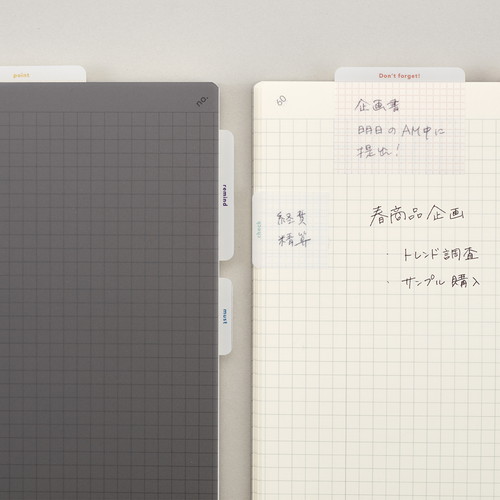 point
no.
remind
must
60
Don't forget!
企画書
明日のAM中に
提出!
経費
精算
春商品企画
・トレンド調査
・サンプル購入